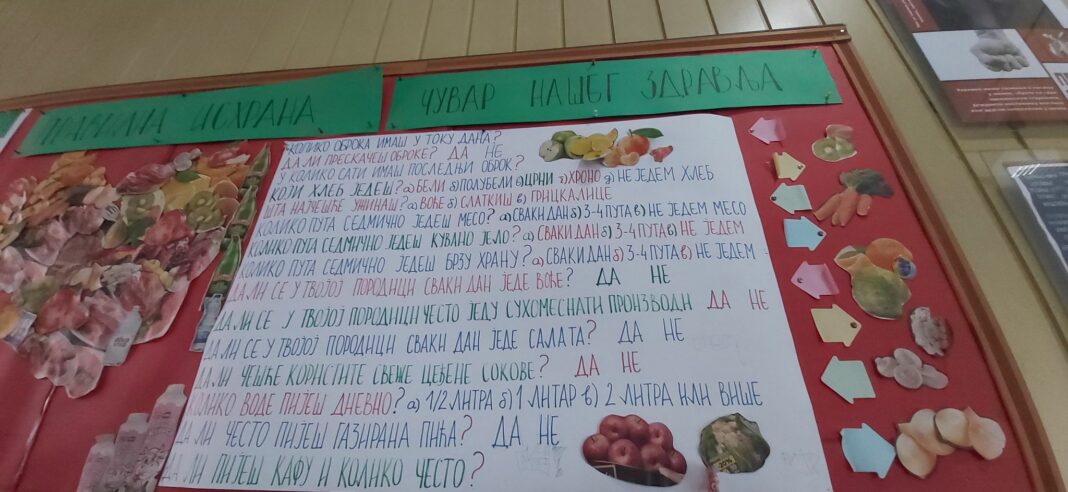 ПРАВИЛН ИСХРАНА
ЧУВАР НАШЕГ ЗДРАВЉА
КОЛИКО ОБРОКА ИМАШ У ТОКУ ДАНА?
ДА ЛИ ПРЕСКАЧЕШ ОБРОКЕ? ДА НЕ
У КОЛИКО САТИ ИМАШ ПОСЛЕДЊИ ОБРОК?
КОЈИ ХЛЕБ ЈЕДЕШ? а) БЕЛИ б) ПОЛУБЕЛИ в) ЦРНИ г) ХРОНО д) НЕ ЈЕДЕМ ХЛЕБ
ШТА НАЈЧЕШЋЕ УЖИНАШ? а) ВОЋЕ б) СЛАТКИШ в) ГРИЦКАЛИЦЕ
КОЛИКО ПУТА СЕДМИЧНО ЈЕДЕШ МЕСО? а) СВАКИ ДАН б) 3-4 ПУТА в) НЕ ЈЕДЕМ МЕСО
КОЛИКО ПУТА СЕДМИЧНО ЈЕДЕШ КУВАНО ЈЕЛО? а) СВАКИ ДАН б) 3-4 ПУТА в) НЕ ЈЕДЕМ
КОЛИКО ПУТА СЕДМИЧНО ЈЕДЕШ БРЗУ ХРАНУ? а) СВАКИ ДАН б) 3-4 ПУТА в) НЕ ЈЕДЕМ
ДА ЛИ СЕ У ТВОЈОЈ ПОРОДИЦИ СВАКИ ДАН ЈЕДЕ ВОЋЕ? ДА НЕ
ДА ЛИ СЕ У ТВОЈОЈ ПОРОДИЦИ ЧЕСТО ЈЕДУ СУХОМЕСНАТИ ПРОИЗВОДИ ДА НЕ
ДА ЛИ СЕ У ТВОЈОЈ ПОРОДИЦИ СВАКИ ДАН ЈЕДЕ САЛАТА? ДА НЕ
ДА ЛИ ЧЕШЋЕ КОРИСТИТЕ СВЕЖЕ ЦЕЂЕНЕ СОКОВЕ? ДА НЕ
КОЛИКО ВОДЕ ПИЈЕШ ДНЕВНО? а) 1/2 ЛИТРА б) 1 ЛИТАР в) 2 ЛИТРА ИЛИ ВИШЕ
ДА ЛИ ЧЕСТО ПИЈЕШ ГАЗИРАНА ПИЋА? ДА НЕ
ДА ЛИ ПИЈЕШ КАФУ И КОЛИКО ЧЕСТО?